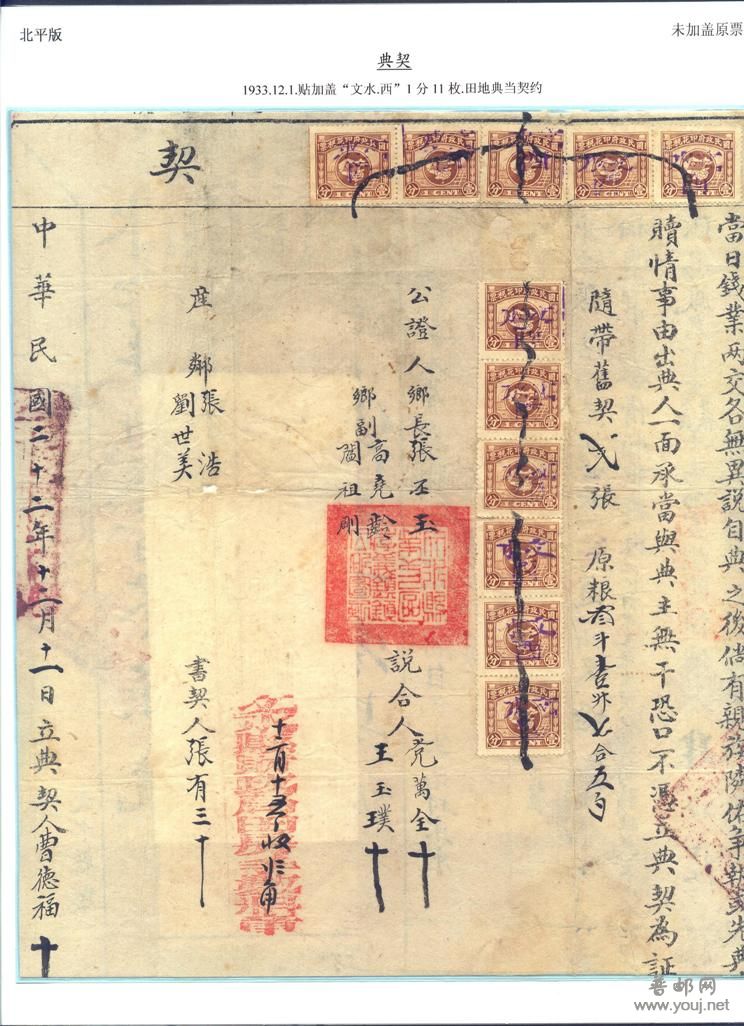 北平版
未加盖原票
典契
1933.12.1.贴加盖“文水.西”1分11枚.田地典当契约
契
國民政府印花稅票
壹分
1 CENT
當日錢業两交各無異説自典之後倘有親族隣佑爭執或先典
贖情事由出典人一面承當與典主無干恐口不憑立典契為証
隨帶舊契弍張 原粮叁斗壹升七合五勺
公證人鄉長張丕玉
鄉副高堯齡
閻祖剛
説合人 萬全 十
王玉璞 十
産鄰張浩
劉世美
書契人張有三 十
中華民國二十二年十二月十一日立典契人曹德福 十
普邮网
www.youj.net